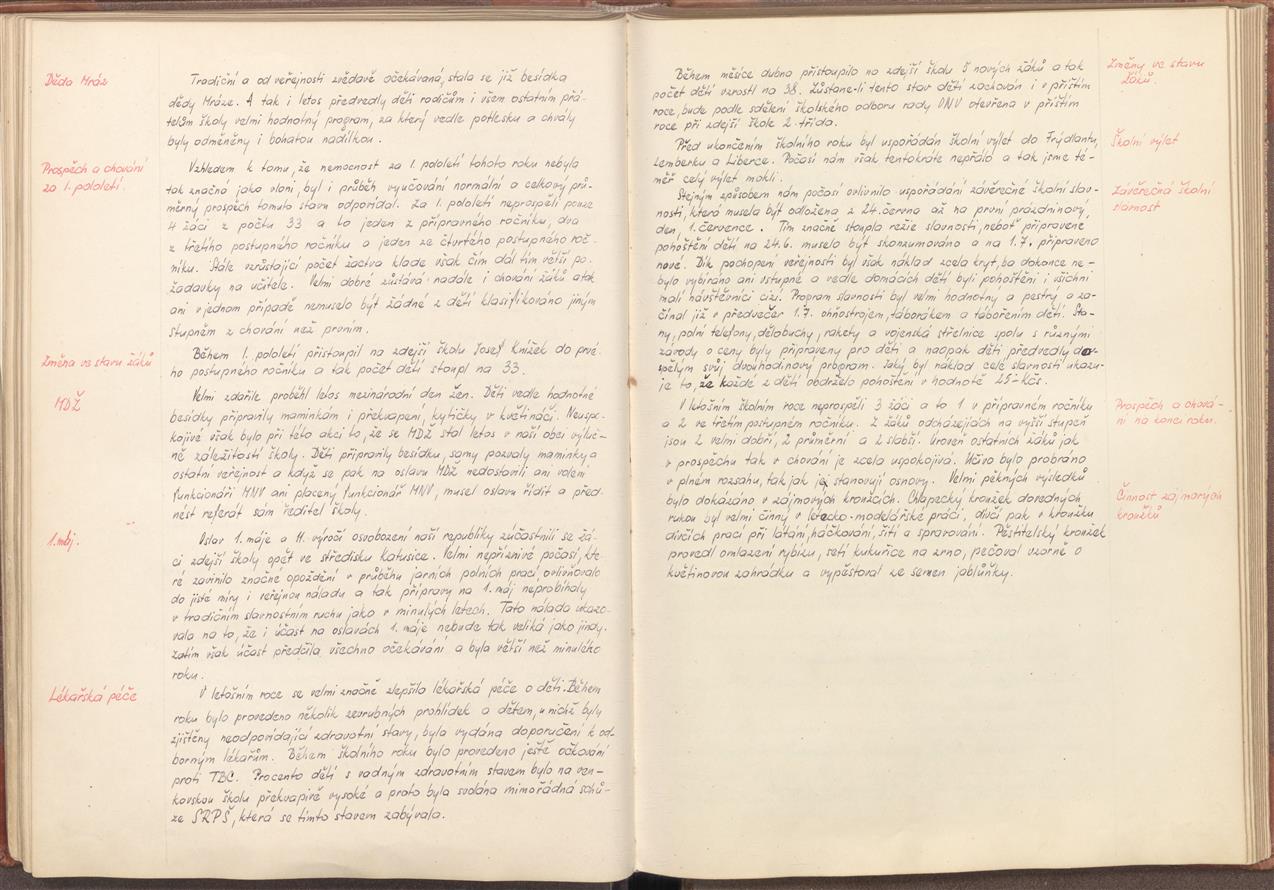 Děda Mráz
Tradiční a od veřejnosti zvědavě očekávaná, stala se již besídka
dědy Mráze. A tak i letos předvedly děti rodičům i všem ostatním přá-
telům školy velmi hodnotný program, za který vedle potlesku a chvály
byly odměněny i bohatou nadílkou.
Prospěch a chování
za 1. pololetí.
Vzhledem k tomu, že nemocnost za 1. pololetí tohoto roku nebyla
tak značná jako vloni, byl i průběh vyučování normální a celkový prů-
měrný prospěch tomuto stavu odpovídal. Za 1. pololetí neprospěli pouze
4 žáci z počtu 33 a to jeden z přípravného ročníku, dva
z třetího postupného ročníku a jeden ze čtvrtého postupného roč-
níku. Stále vzrůstající počet žactva klade však čím dál tím větší po-
žadavky na učitele. Velmi dobré zůstává nadále i chování žáků a tak
ani v jednom případě nemuselo být žádné z dětí klasifikováno jiným
stupněm z chování než prvním.
Změna ve stavu žáků
Během 1. pololetí přistoupil na zdejší školu Josef Knížek do prvé-
ho postupného ročníku a tak počet dětí stoupl na 33.
MDŽ
Velmi zdařile proběhl letos mezinárodní den žen. Děti vedle hodnotné
besídky připravily maminkám i překvapení, kytičky v květináči. Neuspo-
kojivé však bylo při této akci to, že se MDŽ stal letos v naší obci výluč-
ně záležitostí školy. Děti připravily besídku, samy pozvaly maminky a
ostatní veřejnost a když se pak na oslavu MDŽ nedostavili ani volení
funkcionáři MNV ani placený funkcionář MNV, musel oslavu řídit a před-
nést referát sám ředitel školy.
1. máj.
Oslav 1. máje a 11. výročí osvobození naší republiky zúčastnili se žá-
ci zdejší školy opět ve středisku Katusice. Velmi nepříznivé počasí, kte-
ré zavinilo značné opoždění v průběhu jarních polních prací, ovlivňovalo
do jisté míry i veřejnou náladu a tak přípravy na 1. máj neprobíhaly
v tradičním slavnostním ruchu jako v minulých letech. Tato nálada ukazo-
vala na to, že i účast na oslavách 1. máje nebude tak veliká jako jindy.
Zatím však účast předčila všechno očekávání a byla větší než minulého
roku.
Lékařská péče
V letošním roce se velmi značně zlepšila lékařská péče o děti. Během
roku bylo provedeno několik zevrubných prohlídek a dětem, u nichž byly
zjištěny neodpovídající zdravotní stavy, byla vydána doporučení k od-
borným lékařům. Během školního roku bylo provedeno ještě očkování
proti TBC. Procento dětí s vadným zdravotním stavem bylo na ven-
kovskou školu překvapivě vysoké a proto byla svolána mimořádná schů-
ze SRPŠ, která se tímto stavem zabývala.
Změny ve stavu
žáků.
Během měsíce dubna přistoupilo na zdejší školu 5 nových žáků a tak
počet dětí vzrostl na 38. Zůstane-li tento stav dětí zachován i v příštím
roce, bude podle sdělení školského odboru rady ONV otevřena v příštím
roce při zdejší škole 2. třída.
Školní výlet
Před ukončením školního roku byl uspořádán školní výlet do Frýdlantu,
Lemberku a Liberce. Počasí nám však tentokráte nepřálo a tak jsme té-
měř celý výlet mokli.
Závěrečná školní
slavnost
Stejným způsobem nám počasí ovlivnilo uspořádání závěrečné školní slav-
nosti, která musela být odložena z 24. června až na první prázdninový
den, 1. července. Tím značně stoupla režie slavnosti, neboť připravené
pohoštění dětí na 24.6. muselo být skonzumováno a na 1.7. připraveno
nové. Dík pochopení veřejnosti byl však náklad zcela kryt, ba dokonce ne-
bylo vybíráno ani vstupné a vedle domácích dětí byli pohoštěni i všichni
malí návštěvníci cizí. Program slavnosti byl velmi hodnotný a pestrý a za-
čínal již v předvečer 1.7. ohňostrojem, táborákem a tábořením dětí. Sta-
ny, polní telefony, dělobuchy, rakety a vojenská střelnice spolu s různými
závody o ceny byly připraveny pro děti a naopak děti předvedly do-
spělým svůj dvouhodinový program. Jaký byl náklad celé slavnosti ukazu-
je to, že každé z dětí obdrželo pohoštění v hodnotě 25.- Kčs.
Prospěch a chová-
ní na konci roku.
V letošním školním roce neprospěli 3 žáci a to 1 v přípravném ročníku
a 2 ve třetím postupném ročníku. Z žáků odcházejících na vyšší stupeň
jsou 2 velmi dobří, 2 průměrní a 2 slabší. Úroveň ostatních žáků jak
v prospěchu tak v chování je zcela uspokojivá. Učivo bylo probráno
v plném rozsahu, tak jak je stanovují osnovy. Velmi pěkných výsledků
Činnost zájmových
kroužků
bylo dokázáno v zájmových kroužcích. Chlapecký kroužek dovedných
rukou byl velmi činný v letecko-modelářské práci, dívčí pak v kroužku
dívčích prací při látání, háčkování, šití a spravování. Pěstitelský kroužek
provedl omlazení rybízu, setí kukuřice na zrno, pečoval vzorně o
květinovou zahrádku a vypěstoval ze semen jablůňky.